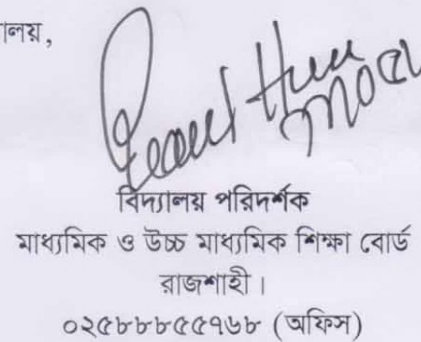 বিদ্যালয় পরিদর্শক
মাধ্যমিক ও উচ্চ মাধ্যমিক শিক্ষা বোর্ড
রাজশাহী।
০২৫৮৮৮৫৫৭৬৮ (অফিস)